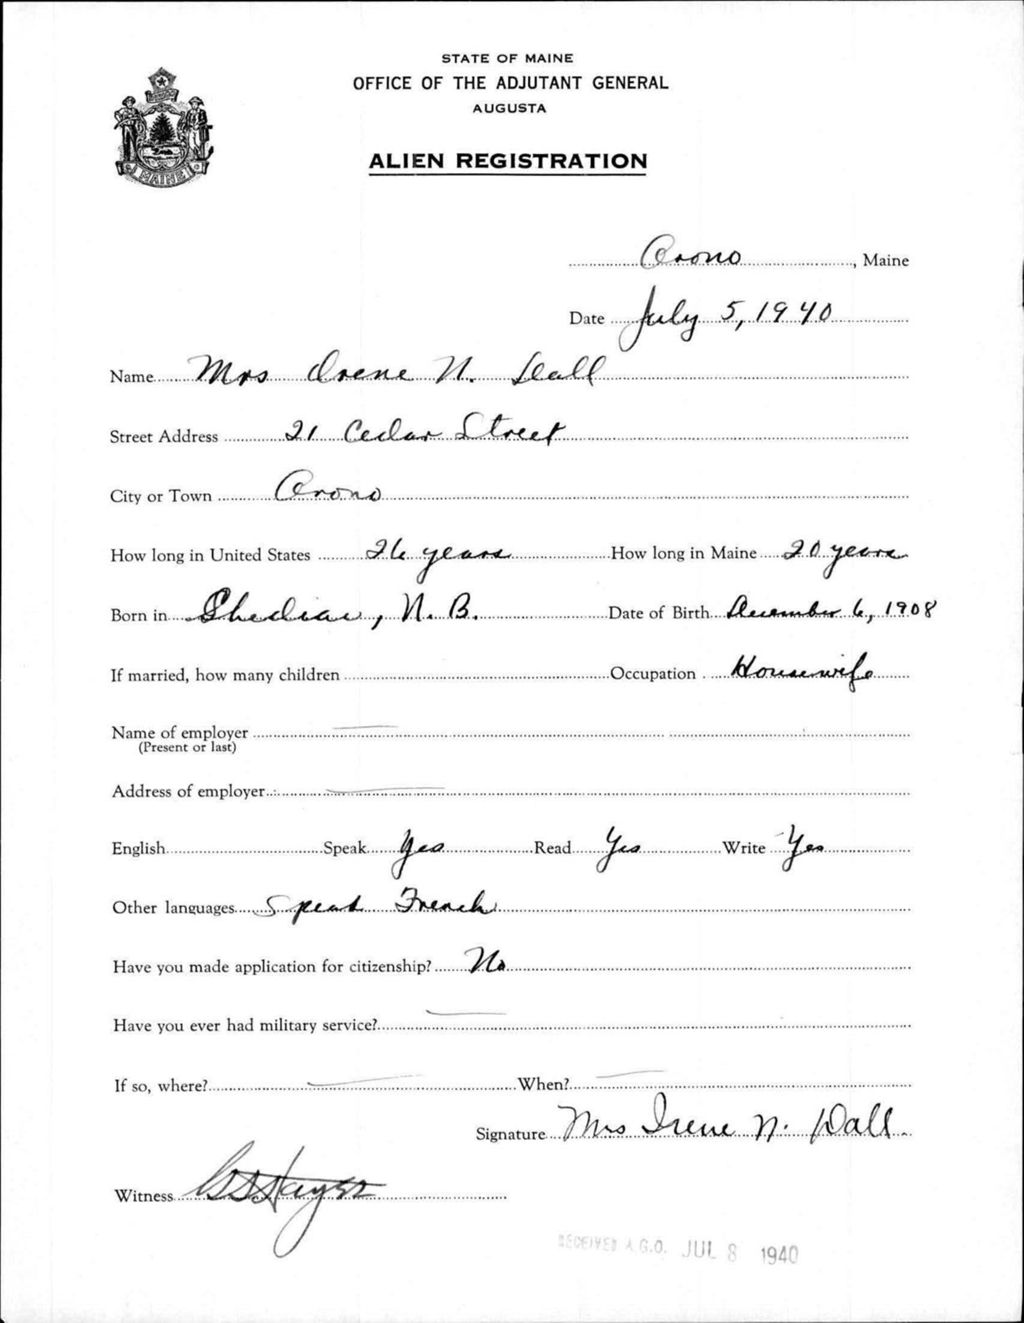 STATE OF MAINE
OFFICE OF THE ADJUTANT GENERAL
AUGUSTA
ALIEN REGISTRATION
MAINE
Orono, Maine
Date July 5, 1940
Name Mrs Irene N. Dall
Street Address 21 Cedar Street
City or Town Orono
How long in United States 26 years How long in Maine 20 years
Born in Shediac, N. B. Date of Birth December 6, 1908
If married, how many children Occupation Housewife
Name of employer
(Present or last)
Address of employer
English Speak Yes Read Yes Write Yes
Other languages Speak French
Have you made application for citizenship? No
Have you ever had military service?
If so, where? When?
Signature Mrs Irene N. Dall
Witness
RECEIVED A.G.O. JUL 8 1940